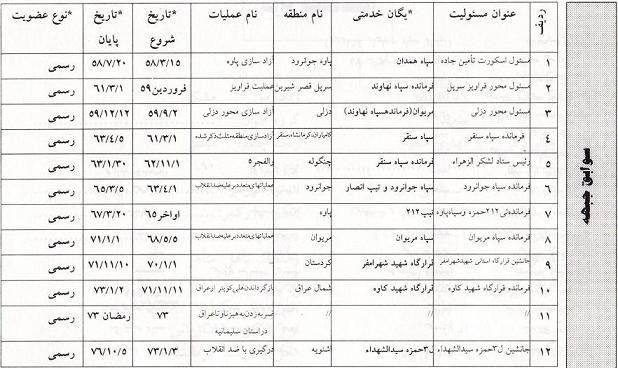 سوابق جبهه
ردیف عنوان مسئولیت *یگان خدمتی نام منطقه نام عملیات *تاریخ شروع *تاریخ پایان *نوع عضویت
۱ مسئول اسکورت تأمین جاده سپاه همدان پاوه جوانرود آزاد سازی پاوه ۵۸/۳/۱۵ ۵۸/۷/۲۰ رسمی
۲ مسئول محور قراویز سرپل فرمانده سپاه نهاوند سرپل قصر شیرین عملیت قراویز فروردین ۵۹ ۶۱/۳/۱ رسمی
۳ مسئول محور دزلی مریوان(فرماندهسپاه نهاوند) دزلی آزاد سازی محور دزلی ۵۹/۹/۲ ۵۹/۱۲/۱۲ رسمی
۴ فرمانده سپاه سنقر سپاه سنقر کامیاران،کرمانشاه،سنقر ازادسازی منطقه مثلث ذکر شده ۶۱/۳/۱ ۶۳/۴/۵ رسمی
۵ رئیس ستاد لشکر الزهراء فرمانده سپاه سنقر چنگوله والفجر۵ ۶۲/۱۱/۱ ۶۳/۱/۳۰ رسمی
۶ فرمانده سپاه جوانرود سپاه جوانرود و تیپ انصار جوانرود عملیاتهای متعدد بر علیه ضدانقلاب ۶۳/۴/۱ ۶۵/۳/۵ رسمی
۷ فرمانده‌تی۲۱۲حمزه وسپاه‌پاوه تیپ۲۱۲ پاوه اواخر۶۵ ۶۷/۳/۲۰ رسمی
۸ فرمانده سپاه مریوان سپاه مریوان مریوان عملیاتهای متعدد بر علیه ضدانقلاب ۶۸/۵/۵ ۷۱/۱/۱ رسمی
۹ جانشین قرارگاه استانی شهیدشهرامفر قرارگاه شهید شهرامفر کردستان ۷۰/۱/۱ ۷۱/۱۱/۱۰ رسمی
۱۰ فرمانده قرارگاه شهید کاوه قرارگاه شهید کاوه شمال عراق بازگرداندن‌های کوپتر ازعراق ۷۱/۱۱/۱۱ ۷۳/۱/۲ رسمی
۱۱ // // // ضربه زدن به هیز ناوتا عراق دراستان سلیمانیه ۷۳ رمضان ۷۳ رسمی
۱۲ جانشین ل۳حمزه سیدالشهداء ل۳حمزه سیدالشهداء شنویه درگیری با ضد القلاب ۷۳/۱/۳ ۷۶/۱۰/۵ رسمی